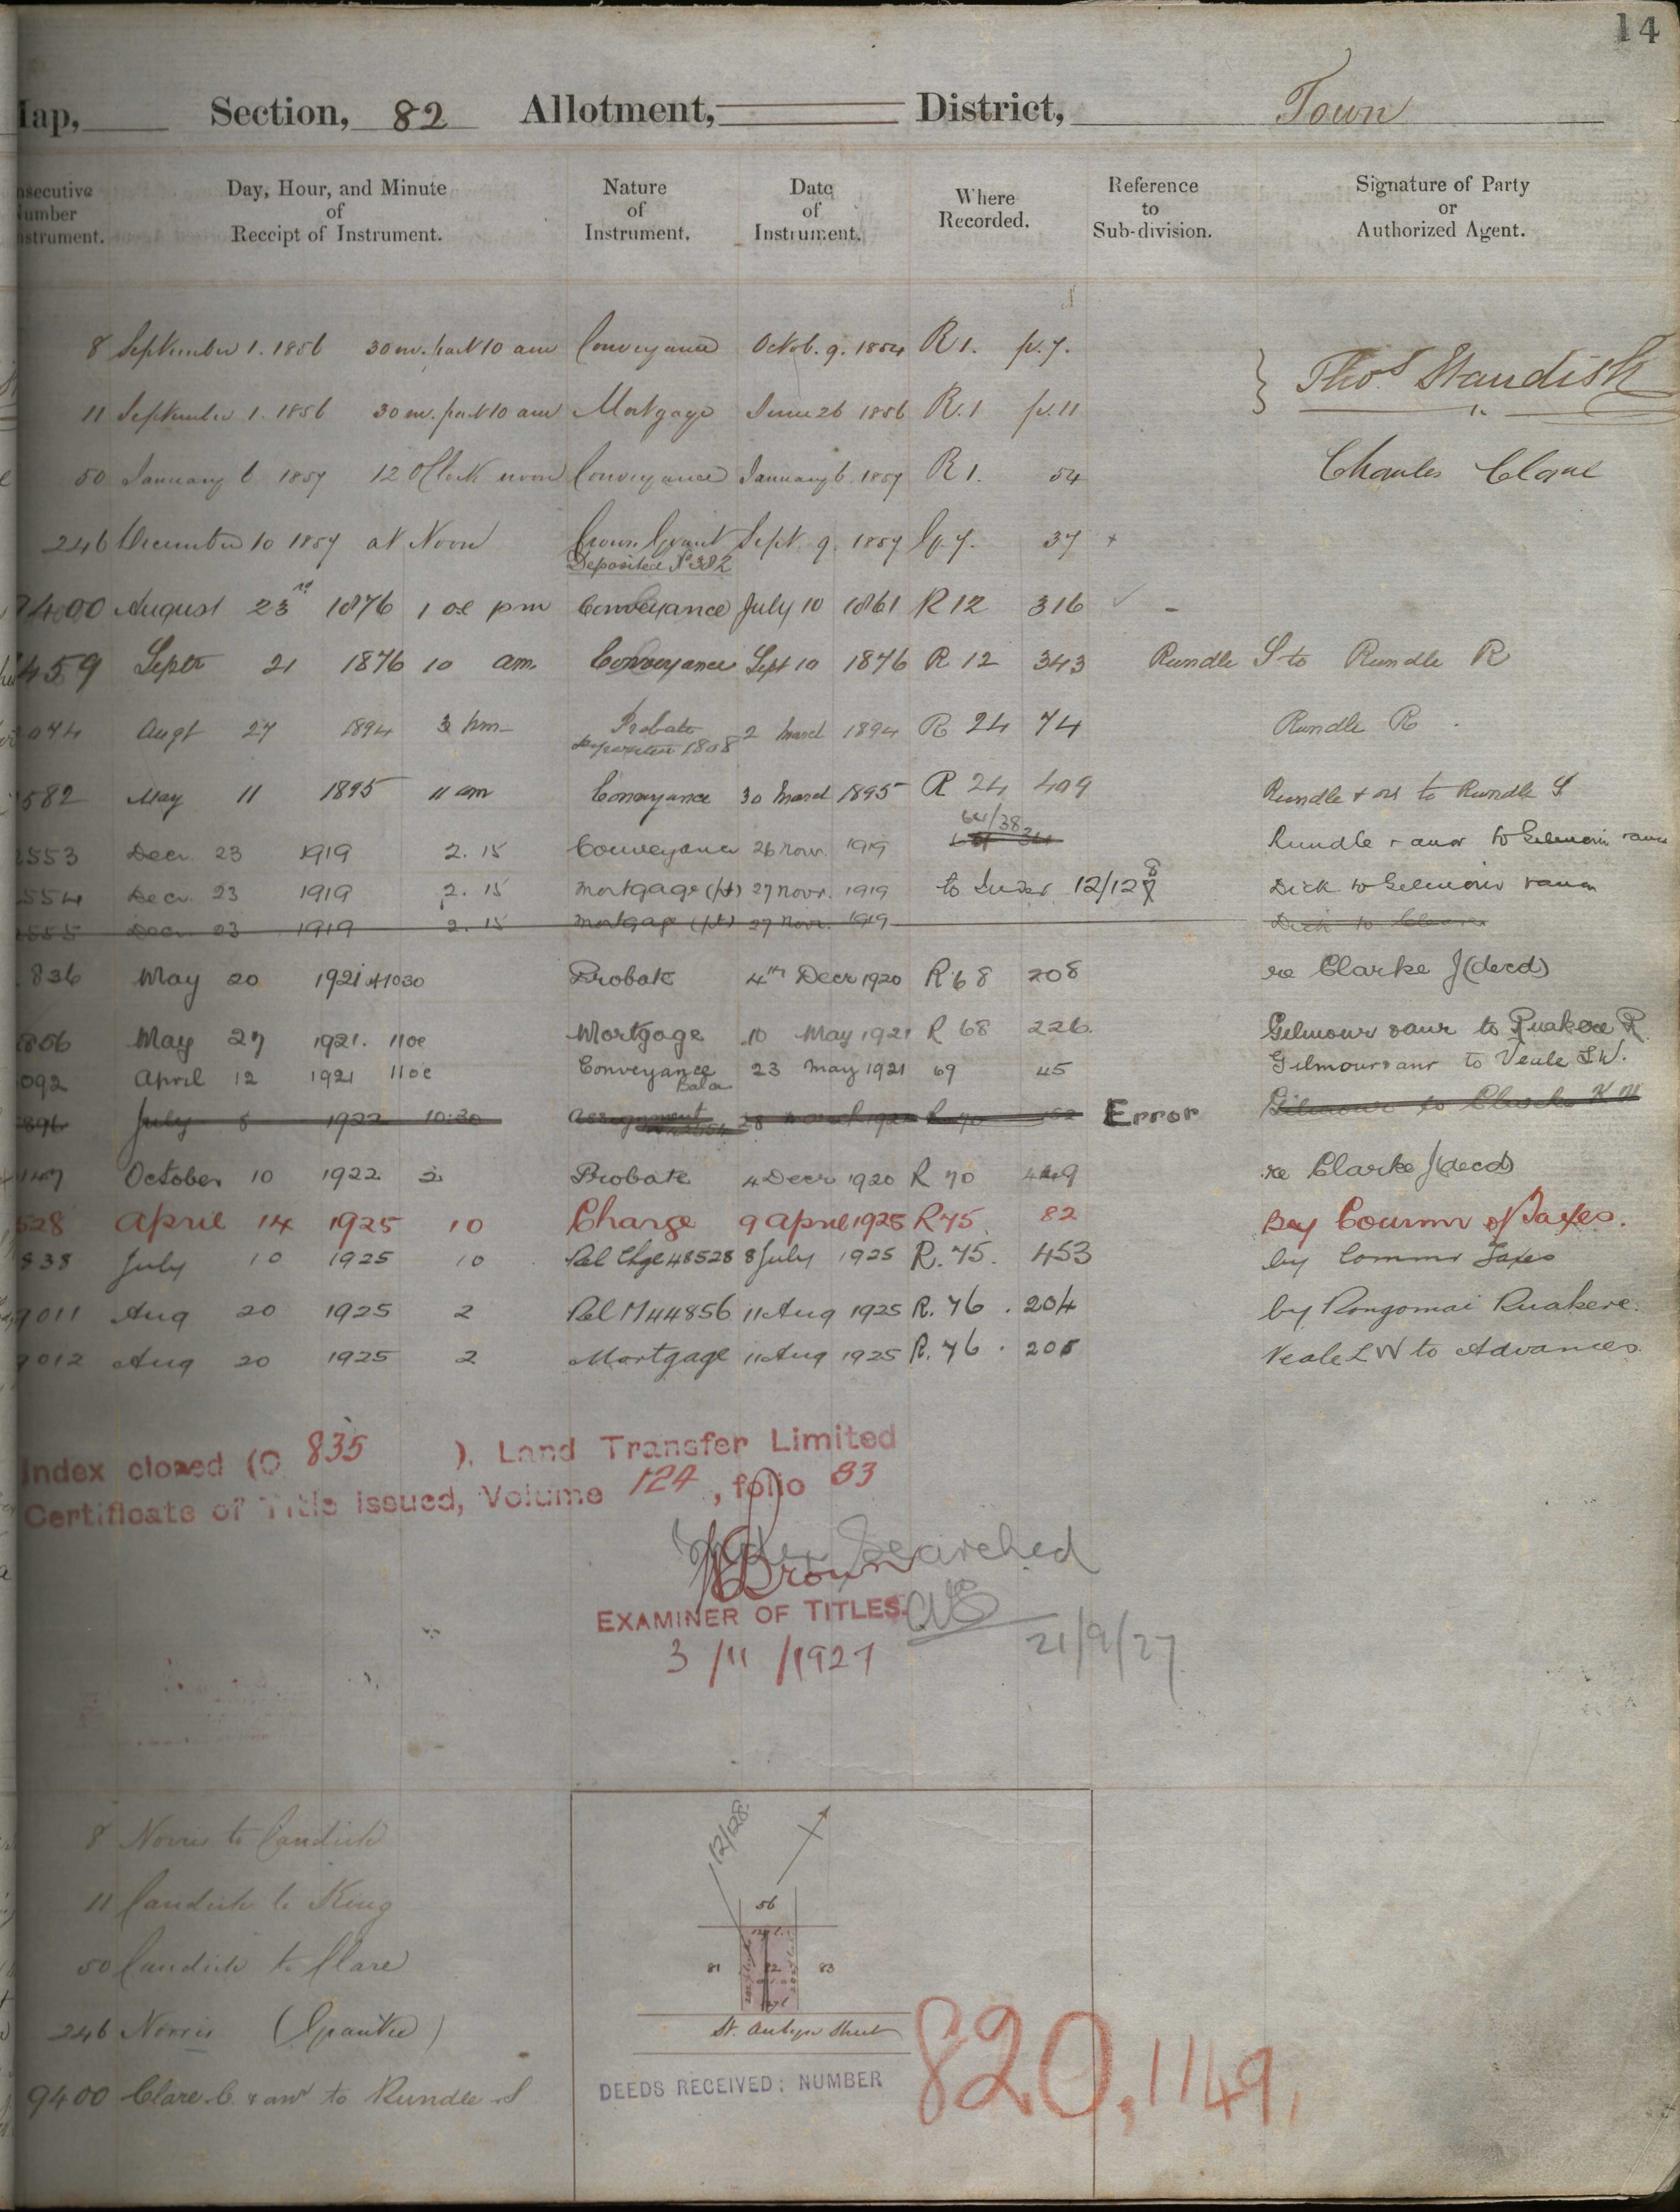 14
Map, Section, 82 Allotment, District, Town
nsecutive Number nstrument.
Day, Hour, and Minute of Receipt of Instrument.
Nature of Instrument.
Date of Instrument.
Where Recorded.
Reference to Sub-division.
Signature of Party or Authorized Agent.
8 September 1. 1856 30 m. past 10 am Conveyance Octob. 9. 1854 R 1. p. 7.
Thos Standish
11 September 1. 1856 30 m. past 10 am Mortgage June 26 1856 R. 1 p. 11
50 January 6 1857 12 OClock noon Conveyance January 6. 1857 R 1. 54 Charles Clare
246 December 10 1857 at Noon Crown Grant Sept. 9. 1857 G. 7. 37 +
Deposited No 382
9400 August 23rd 1876 1 oc pm Conveyance July 10 1861 R 12 316 ✓ -
459 Septr 21 1876 10 am. Conveyance Sept 10 1876 R 12 343 Rundle S to Rundle R
074 Augt 27 1894 3 pm Probate 2 March 1894 R 24 74 Rundle R
Deposited 1808
582 May 11 1895 11 am Conveyance 30 March 1895 R 24 409 Rundle + or to Rundle S
64/38
553 Decr. 23 1919 2. 15 Conveyance 26 Novr. 1919 Rundle + anor to Gilmour + anor
554 Decr. 23 1919 2. 15 Mortgage (pt) 27 Novr. 1919 to Index 12/128 Dick to Gilmour + anor
555 Decr. 23 1919 2. 15 Mortgage (pt) 27 Novr. 1919 Dick to Clarke
836 May 20 1921 at 1030 Probate 4th Decr 1920 R 68 208 re Clarke J (decd)
856 May 27 1921. 11 oc Mortgage 10 May 1921 R 68 226. Gilmour & anr to Ruakere R
092 April 12 1921 11 oc Conveyance 23 May 1921 69 45 Gilmour & anr to Veale L W.
Balce
896 July 5 1922 10:30 Assignment 28 March 1922 R 70 Error Gilmour to Clarke
147 October 10 1922 2 Probate 4 Decr 1920 R 70 449 re Clarke J (decd)
528 April 14 1925 10 Charge 9 April 1925 R 75. 82 By Commr of Taxes.
838 July 10 1925 10 Rel Chge 48528 8 July 1925 R. 75. 453 by Commr Taxes
9011 Aug 20 1925 2 Rel M 44856 11 Aug 1925 R. 76. 204 by Rongomai Ruakere.
9012 Aug 20 1925 2 Mortgage 11 Aug 1925 R. 76. 205 Veale L W to Advances.
Index closed (O 835 ). Land Transfer Limited
Certificate of Title issued, Volume 124, folio 83
Index Searched
Brown
EXAMINER OF TITLES.
3/11/1927
21/9/27
8 Norris to Candish
11 Candish to King
50 Candish to Clare
246 Norris (Grantee)
9400 Clare C. & anr to Rundle S
12/128.
56
81 82 83
St. Aubyn Street
DEEDS RECEIVED: NUMBER
820, 1149,